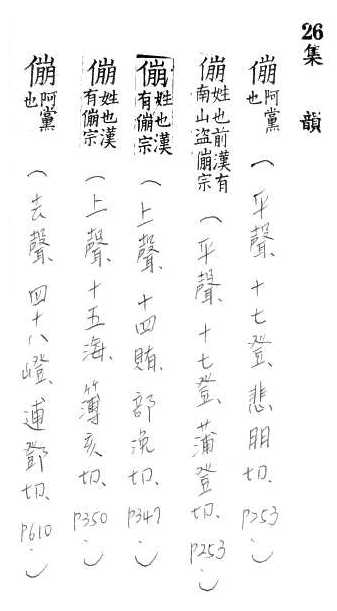 26集韻
傰阿黨也（平聲、十七登、悲朋切、P253。）
傰姓也前漢有南山盜傰宗（平聲、十七登、蒲登切、P253。）
傰姓也漢有傰宗（上聲、十四賄、部浼切、P347。）
傰姓也漢有傰宗（上聲、十五海、簿亥切、P350。）
傰阿黨也（去聲、四十八嶝、逋鄧切、P610。）